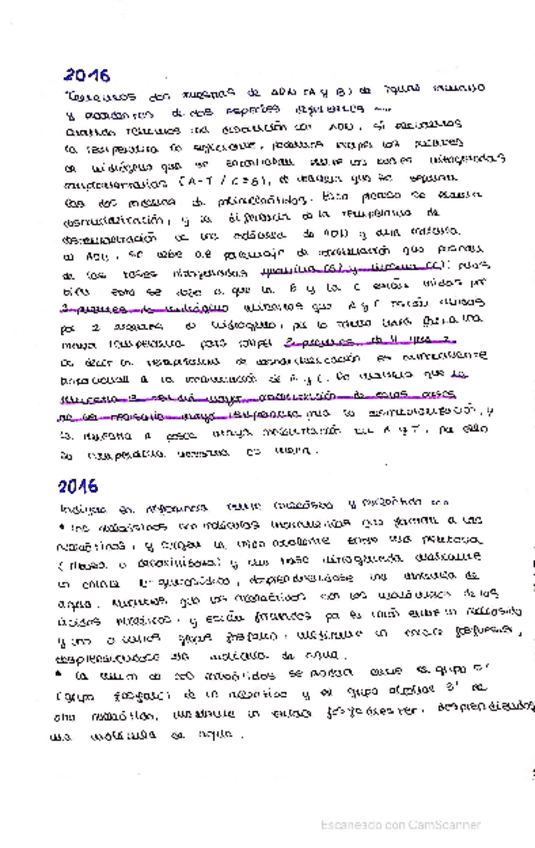 2016
"Tenemos dos muestras de ADN (A y B) de igual tamaño
y procedentes de dos especies diferentes ...
Cuando tenemos una disolución con ADN, si elevamos
la temperatura lo suficiente, podemos romper los puentes
de hidrógeno que se encontraban entre las bases nitrogenadas
complementarias (A-T / C≡G), de manera que se separan
las dos hebras de polinucleótidos. Este proceso se llama
desnaturalización, y la diferencia de la temperatura de
desnaturalización de una molécula de ADN y otra
de ADN, se debe al porcentaje de que
de las bases nitrogenadas guanina (G) y citosina (C); pues
bien esto se debe a que la G y la C están unidas por
3 puentes de hidrógeno mientras que A y T están unidas
por 2 puentes de hidrógeno, por lo tanto hará falta una
mayor temperatura para romper 3 puentes de H que 2.
Es decir la temperatura de desnaturalización es directamente
proporcional a la de G y C. De manera que la
muestra B tendrá mayor de estas bases
mayor temperatura para la desnaturalización, y
la muestra A posee mayor con A y T, por ello
la temperatura necesaria es menor.
2016
Indique las diferencias entre nucleósido y nucleótido ...
• Los nucleósidos son moléculas que forman a los
nucleótidos, y surgen la unión entre una pentosa
(ribosa o desoxirribosa) y una base nitrogenada mediante
un enlace N-glucosídico, desprendiéndose una molécula de
agua. Mientras que los nucleótidos son los monómeros de los
ácidos nucleicos, y están formados por la unión entre un nucleósido
y uno o varios grupos fosfato, mediante un enlace
desprendiéndose una molécula de agua.
• La unión de dos nucleótidos se produce entre el grupo 5'
(grupo fosfato) de un nucleótido y el grupo 3' de
otro nucleótido, mediante un enlace fosfodiéster, desprendiendose
una molécula de agua.
Escaneado con CamScanner